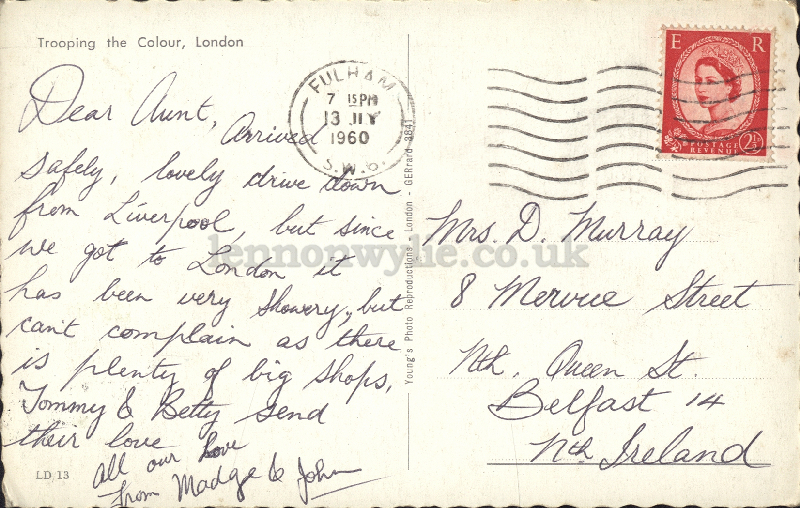 Trooping the Colour, London
Dear Aunt,
Arrived
safely, lovely drive down
from Liverpool, but since
we got to London it
has been very showery, but
can't complain as there
is plenty of big shops,
Tommy & Betty send
their love
All our love
from Madge & John
LD 13
Young's Photo Reproductions London - GERrard 3841
FULHAM
7 15PM
13 JLY
1960
S.W.6.
E R
POSTAGE
REVENUE
2½
Mrs. D. Murray
8 Mervue Street
Nth. Queen St.
Belfast 14
Nth Ireland
lennonwylie.co.uk